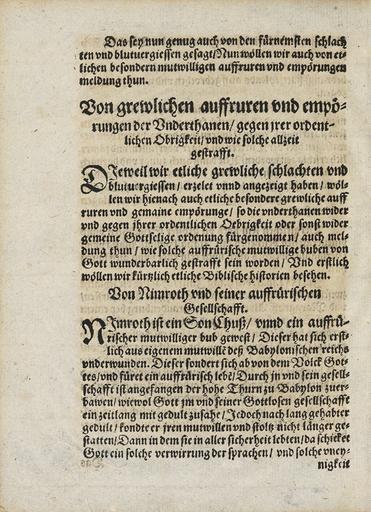 Das sey nun genug auch von den fürnemsten schlach
ten vnd blutuergiessen gesagt/Nun wöllen wir auch von et-
lichen besondern mutwilligen auffruren vnd empörungen
meldung thun.
Von grewlichen auffruren vnd empö-
rungen der Vnderthanen/ gegen jrer ordent-
lichen Obrigkeit/ vnd wie solche allzeit
gestrafft.
DJeweil wir etliche grewliche schlachten vnd
blutuergiessen/ erzelet vnnd angezeigt haben/ wöl-
len wir hienach auch etliche besondere grewliche auff
ruren vnd gemaine empörunge/ so die vnderthanen wider
vnd gegen jhrer ordentlichen Oebrigkeit oder sonst wider
gemeine Gottselige ordenung fürgenommen/ auch mel-
dung thun/ wie solche auffrürische mutwillige buben von
Gott wunderbarlich gestrafft sein worden/ Vnd erstlich
wöllen wir kürtzlich etliche Biblische historien besehen.
Von Nimroth vnd seiner auffrürischen
Gesellschafft.
NJmroth ist ein Son Chuß/ vnnd ein auffrü-
rischer mutwilliger bub gewest/ Dieser hat sich erst-
lich aus eigenem mutwille deß Babylonischen reichs
vnderwunden. Dieser sondert sich ab von dem Volck Got-
tes/ vnd füret ein auffrürisch lebē/ Durch jn vnd sein gesell-
schafft ist angefangen der hohe Thurn zu Babylon zuer-
bawen/ wiewol Gott jm vnd seiner Gottlosen gesellschafft
ein zeitlang mit gedult zusahe/ Jedoch nach lang gehabter
gedult/ kondte er jren mutwillen vnd stoltz nicht länger ge-
statten/ Dann in dem sie in aller sicherheit lebten/ da schicket
Gott ein solche verwirrung der sprachen/ vnd solche vney-
nigkeit